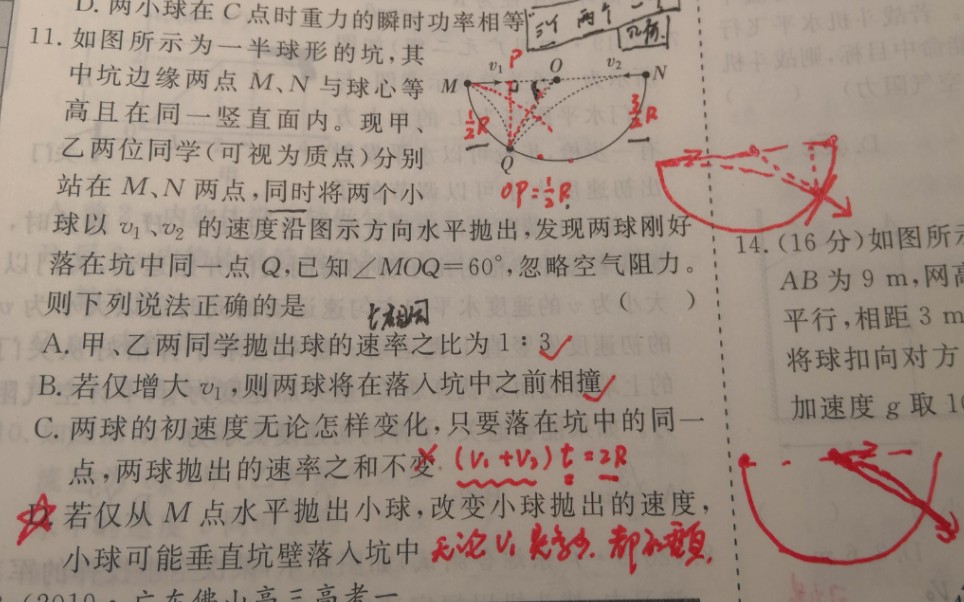 D. 两小球在 C 点时重力的瞬时功率相等
11. 如图所示为一半球形的坑,其
中坑边缘两点 M、N 与球心等
高且在同一竖直面内。现甲、
乙两位同学(可视为质点)分别
站在 M、N 两点,同时将两个小
球以 v₁、v₂ 的速度沿图示方向水平抛出,发现两球刚好
落在坑中同一点 Q,已知∠MOQ=60°,忽略空气阻力。
则下列说法正确的是 ( )
t相同
A. 甲、乙两同学抛出球的速率之比为 1∶3
B. 若仅增大 v₁,则两球将在落入坑中之前相撞
C. 两球的初速度无论怎样变化,只要落在坑中的同一
点,两球抛出的速率之和不变 (v₁+v₂)t=2R
D. 若仅从 M 点水平抛出小球,改变小球抛出的速度,
小球可能垂直坑壁落入坑中 无论 V₁
M v₁ P O v₂ N
½R
3/2R
Q
OP=½R
两个
14. (16 分)如图所示
AB 为 9 m,网高
平行,相距 3 m
将球扣向对方
加速度 g 取 10